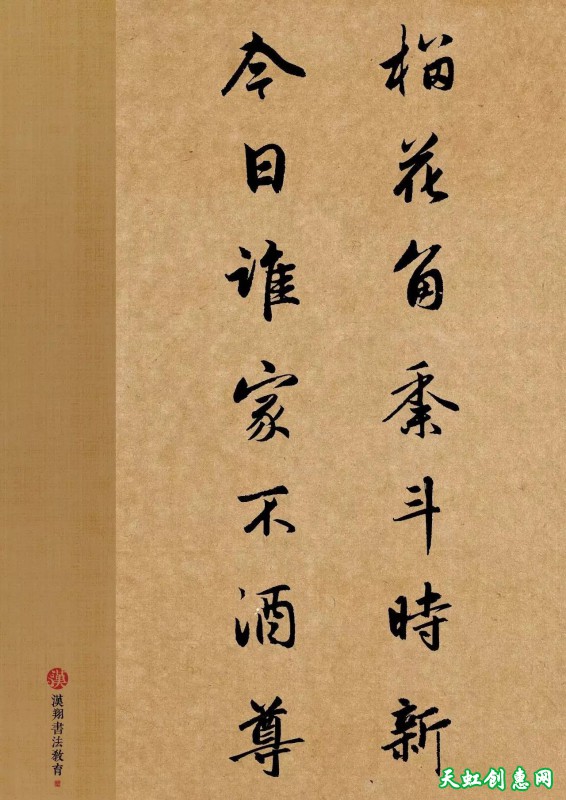 榴花角黍斗時新
今日谁家不酒尊
漢
漢翔書法教育
天虹创惠网